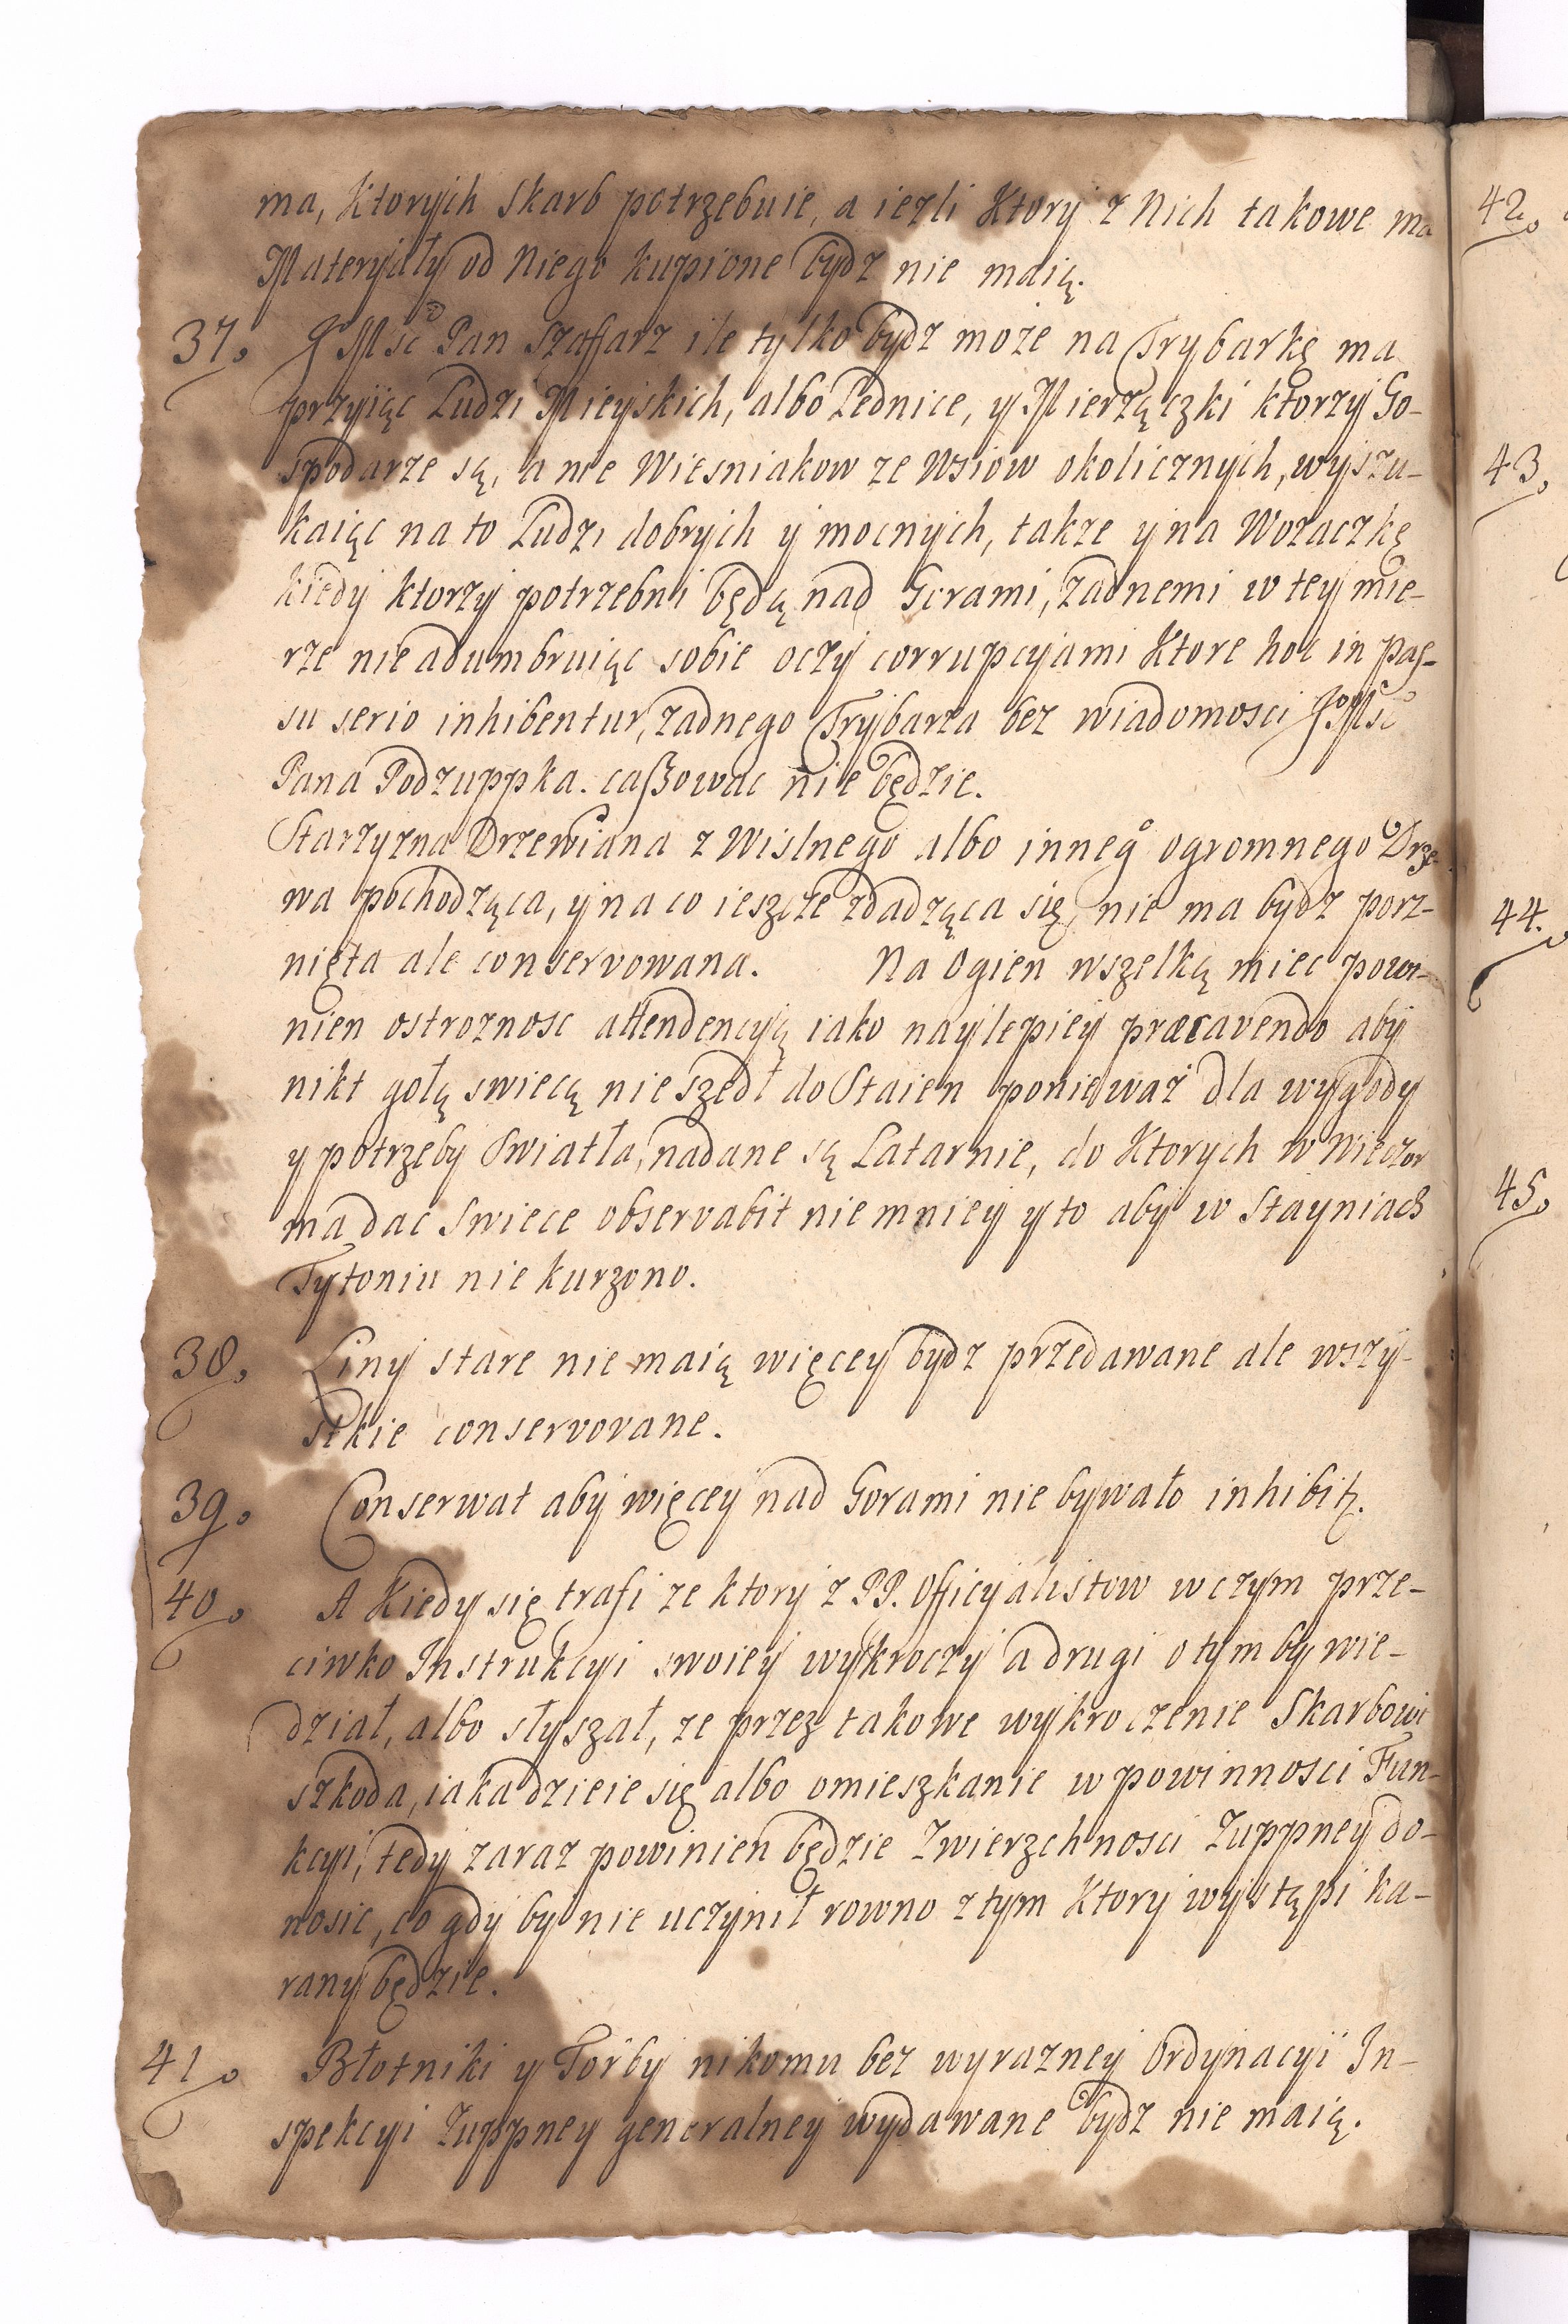 ma, Ktorych Skarb potrzebuie, a iezli Ktory z Nich takowe ma
Materyały od Niego kupione bydz nie maią.
37. JMsc Pan Szaffarz ile tylko bydz moze na Trybarkę ma
przyiąc Ludzi Mieyskich, albo Lednice, y Mierzączki ktorzy Go-
spodarze są, a nie Wiesniakow ze Wsiow okolicznych, wyszu-
kaiąc na to Ludzi dobrych y mocnych, takze y na Wozaczkę
kiedy ktorzy potrzebni będą nad Gorami, zadnemi w tey mie-
rze nie adumbruiąc sobie oczy corrupcyami Ktore hoc in pas-
su serio inhibentur, zadnego Trybarza bez wiadomosci JoMsc
Pana Podzuppka. caßowac nie będzie.
Starzyzna Drzewiana z Wislnego albo innego ogromnego Drze-
wa pochodząca, y na co ieszcze zdadząca się, nie ma bydz porz-
nięta ale conservowana. Na Ogien wszelką miec powi-
nien ostroznosc attendencyą iako naylepiey præcavendo aby
nikt gołą swiecą nie szedł do Staien poniewaz dla wygody
y potrzeby Swiatła, nadane są Latarnie, do Ktorych w Wieczor
ma dac Swiece observabit niemniey y to aby w Stayniach
Tytoniu nie kurzono.
38. Liny stare nie maią więcey bydz przedawane ale wszy-
stkie conservovane.
39. Conserwat aby więcey nad Gorami nie bywało inhibitr.
40. A Kiedy się trafi ze ktory z PP. Officyalistow w czym prze-
ciwko Instrukcyi swoiey wykroczy a drugi o tym by wie-
dział, albo słyszał, ze przez takowe wykroczenie Skarbowi
szkoda, iaka dzieie się albo omieszkanie w powinnosci Fun-
kcyi, tedy zaraz powinien będzie Zwierzchnosci Zuppney do-
nosic, co gdy by nie uczynił rowno z tym Ktory wystąpi ka-
rany będzie.
41. Błotniki y Torby nikomu bez wyrazney Ordynacyi In-
spekcyi Zuppney generalney wydawane bydz nie maią.
42.
43.
44.
45.